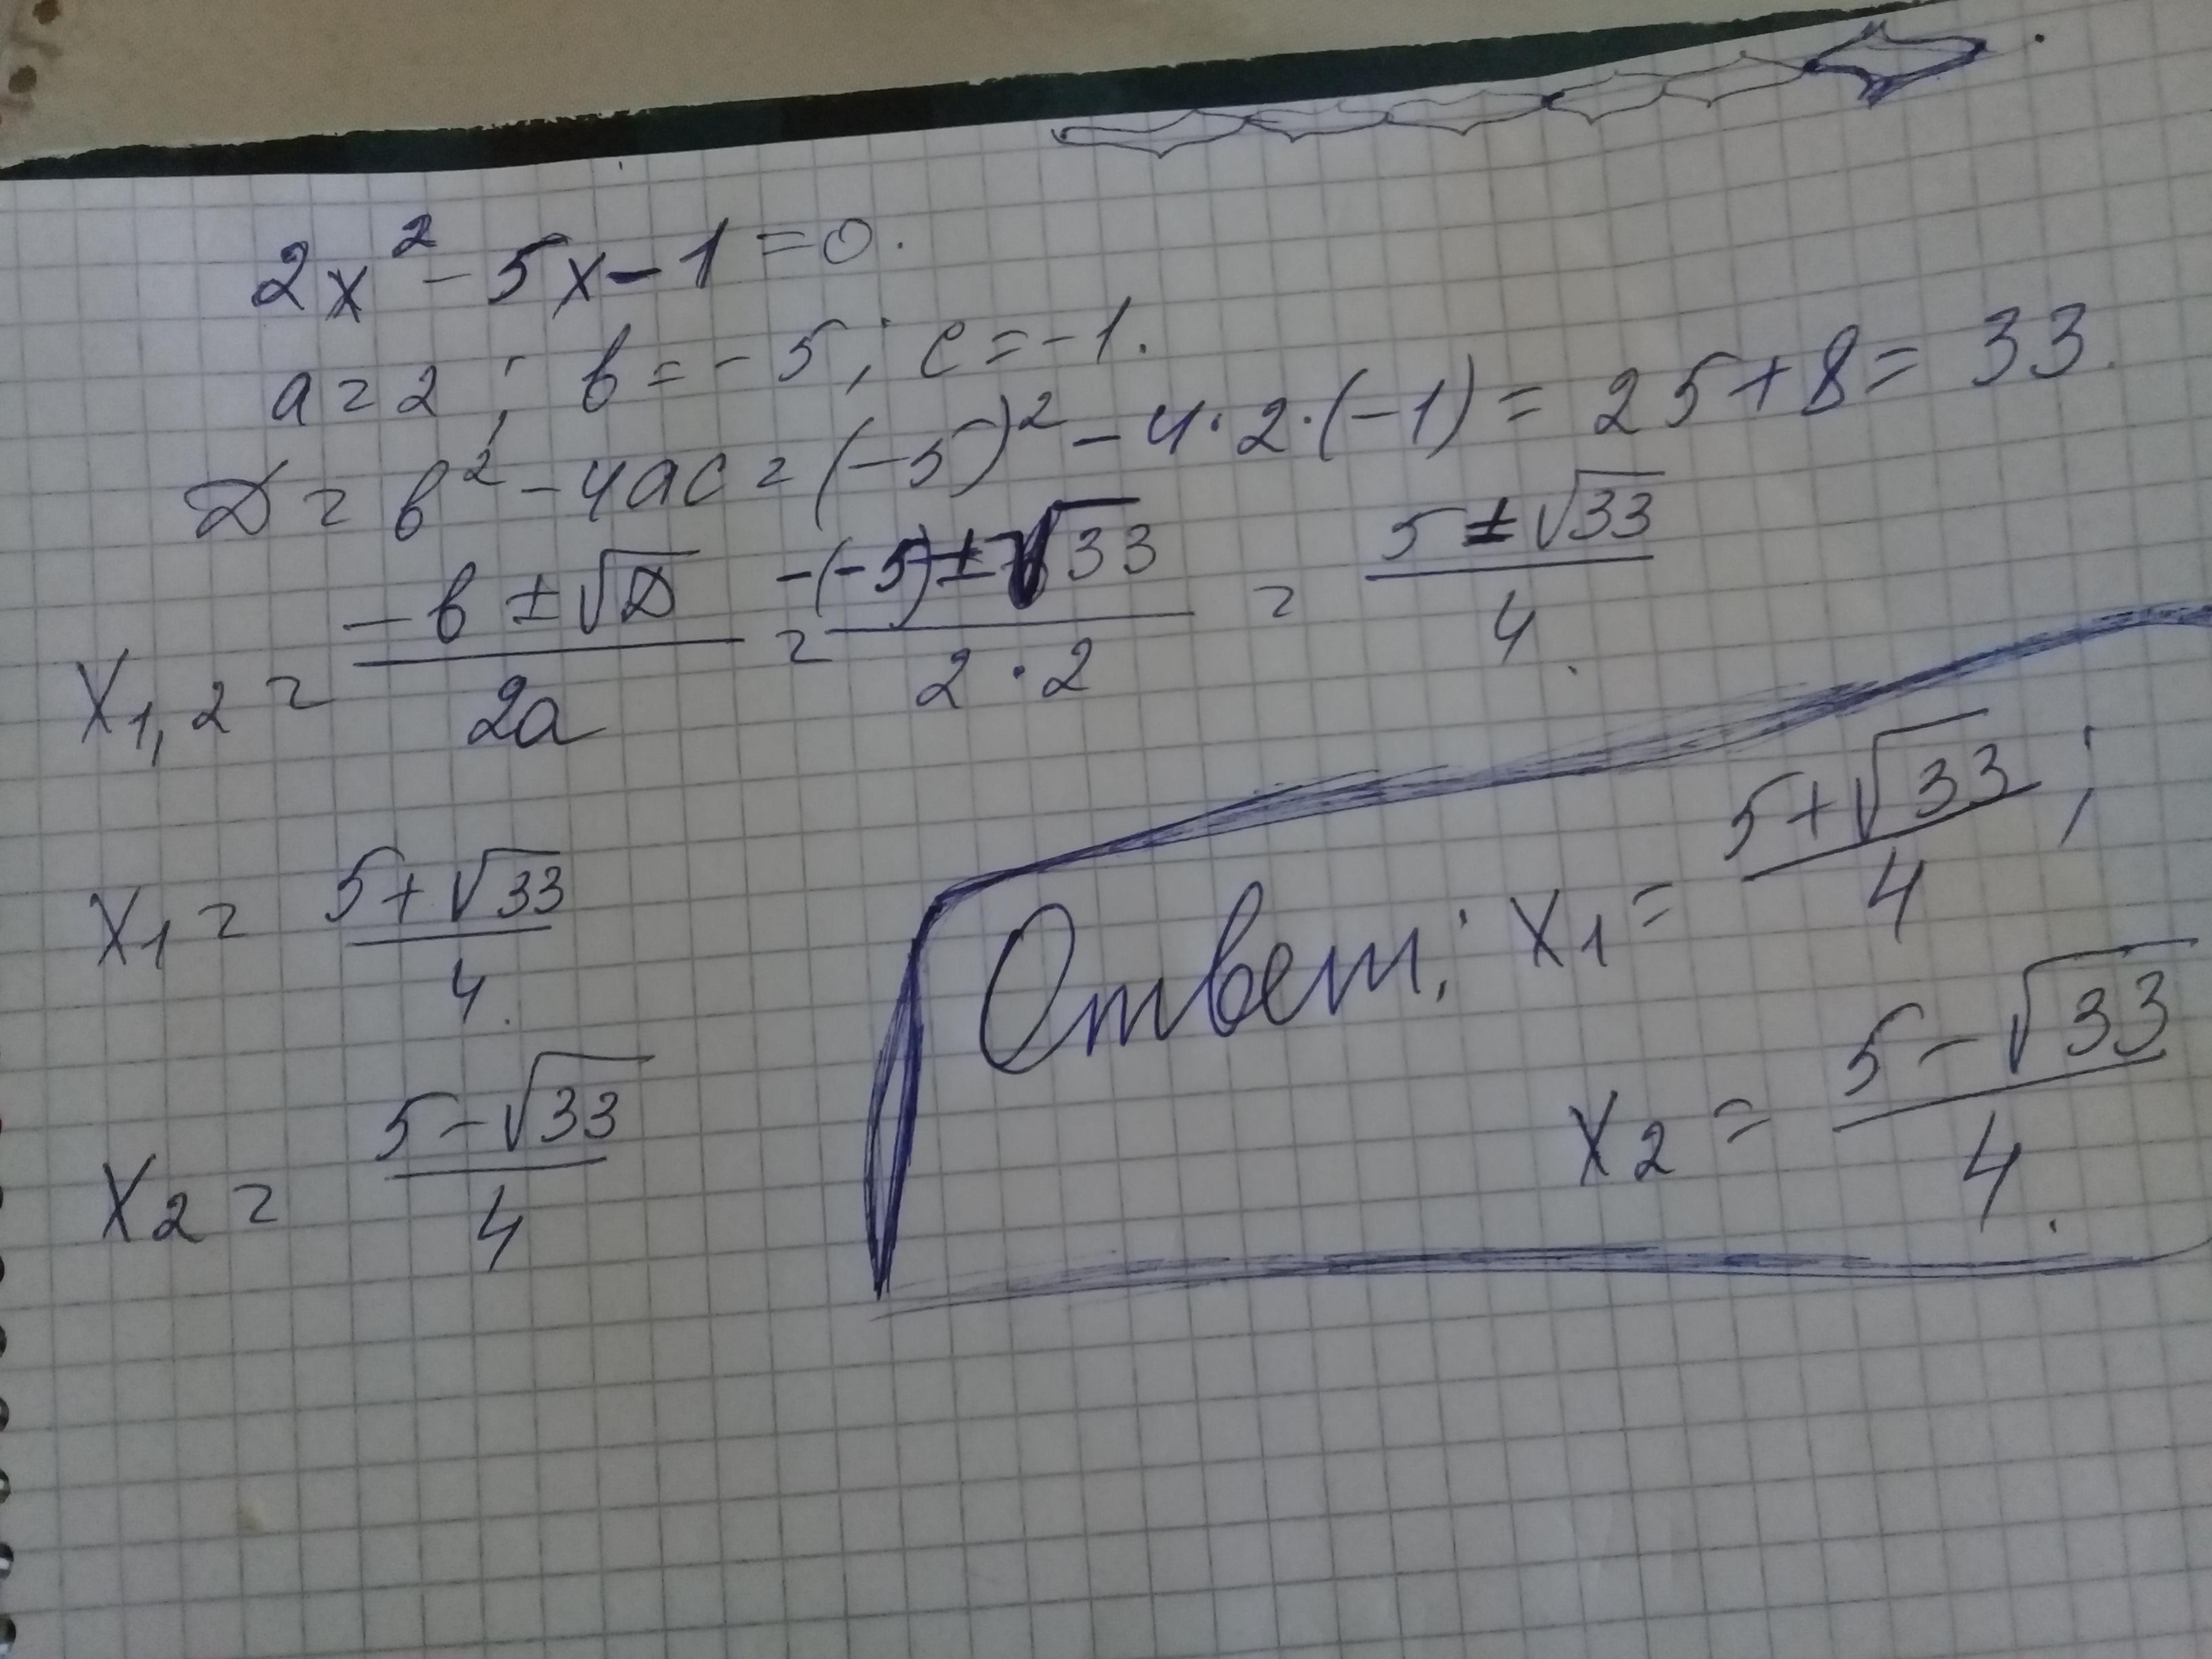 2x² - 5x - 1 = 0.
a = 2; b = -5; c = -1.
D = b² - 4ac = (-5)² - 4·2·(-1) = 25 + 8 = 33.
x₁,₂ = (-b ± √D)/(2a) = (-(-5) ± √33)/(2·2) = (5 ± √33)/4.
x₁ = (5 + √33)/4.
x₂ = (5 - √33)/4
Ответ: x₁ = (5 + √33)/4;
x₂ = (5 - √33)/4.